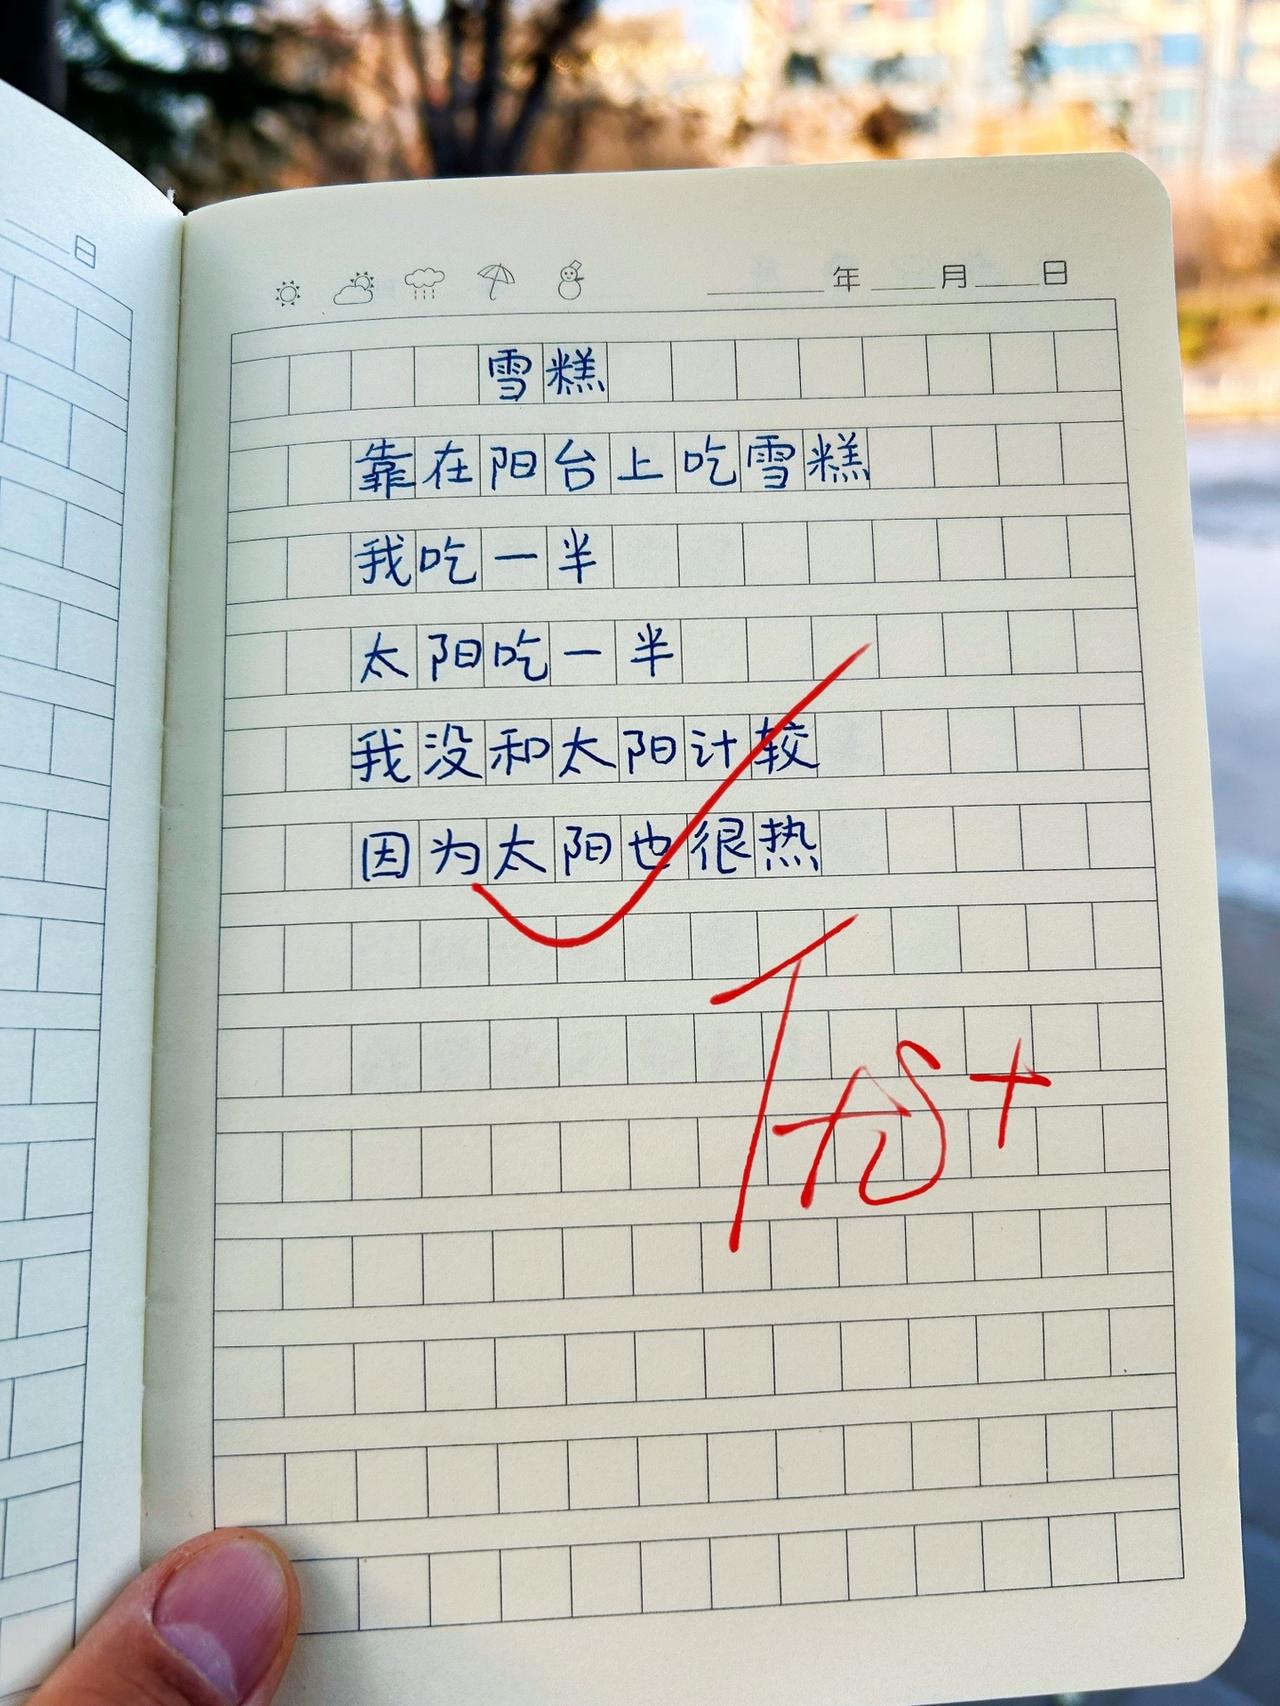 日
年 月 日
雪糕
靠在阳台上吃雪糕
我吃一半
太阳吃一半
我没和太阳计较
因为太阳也很热